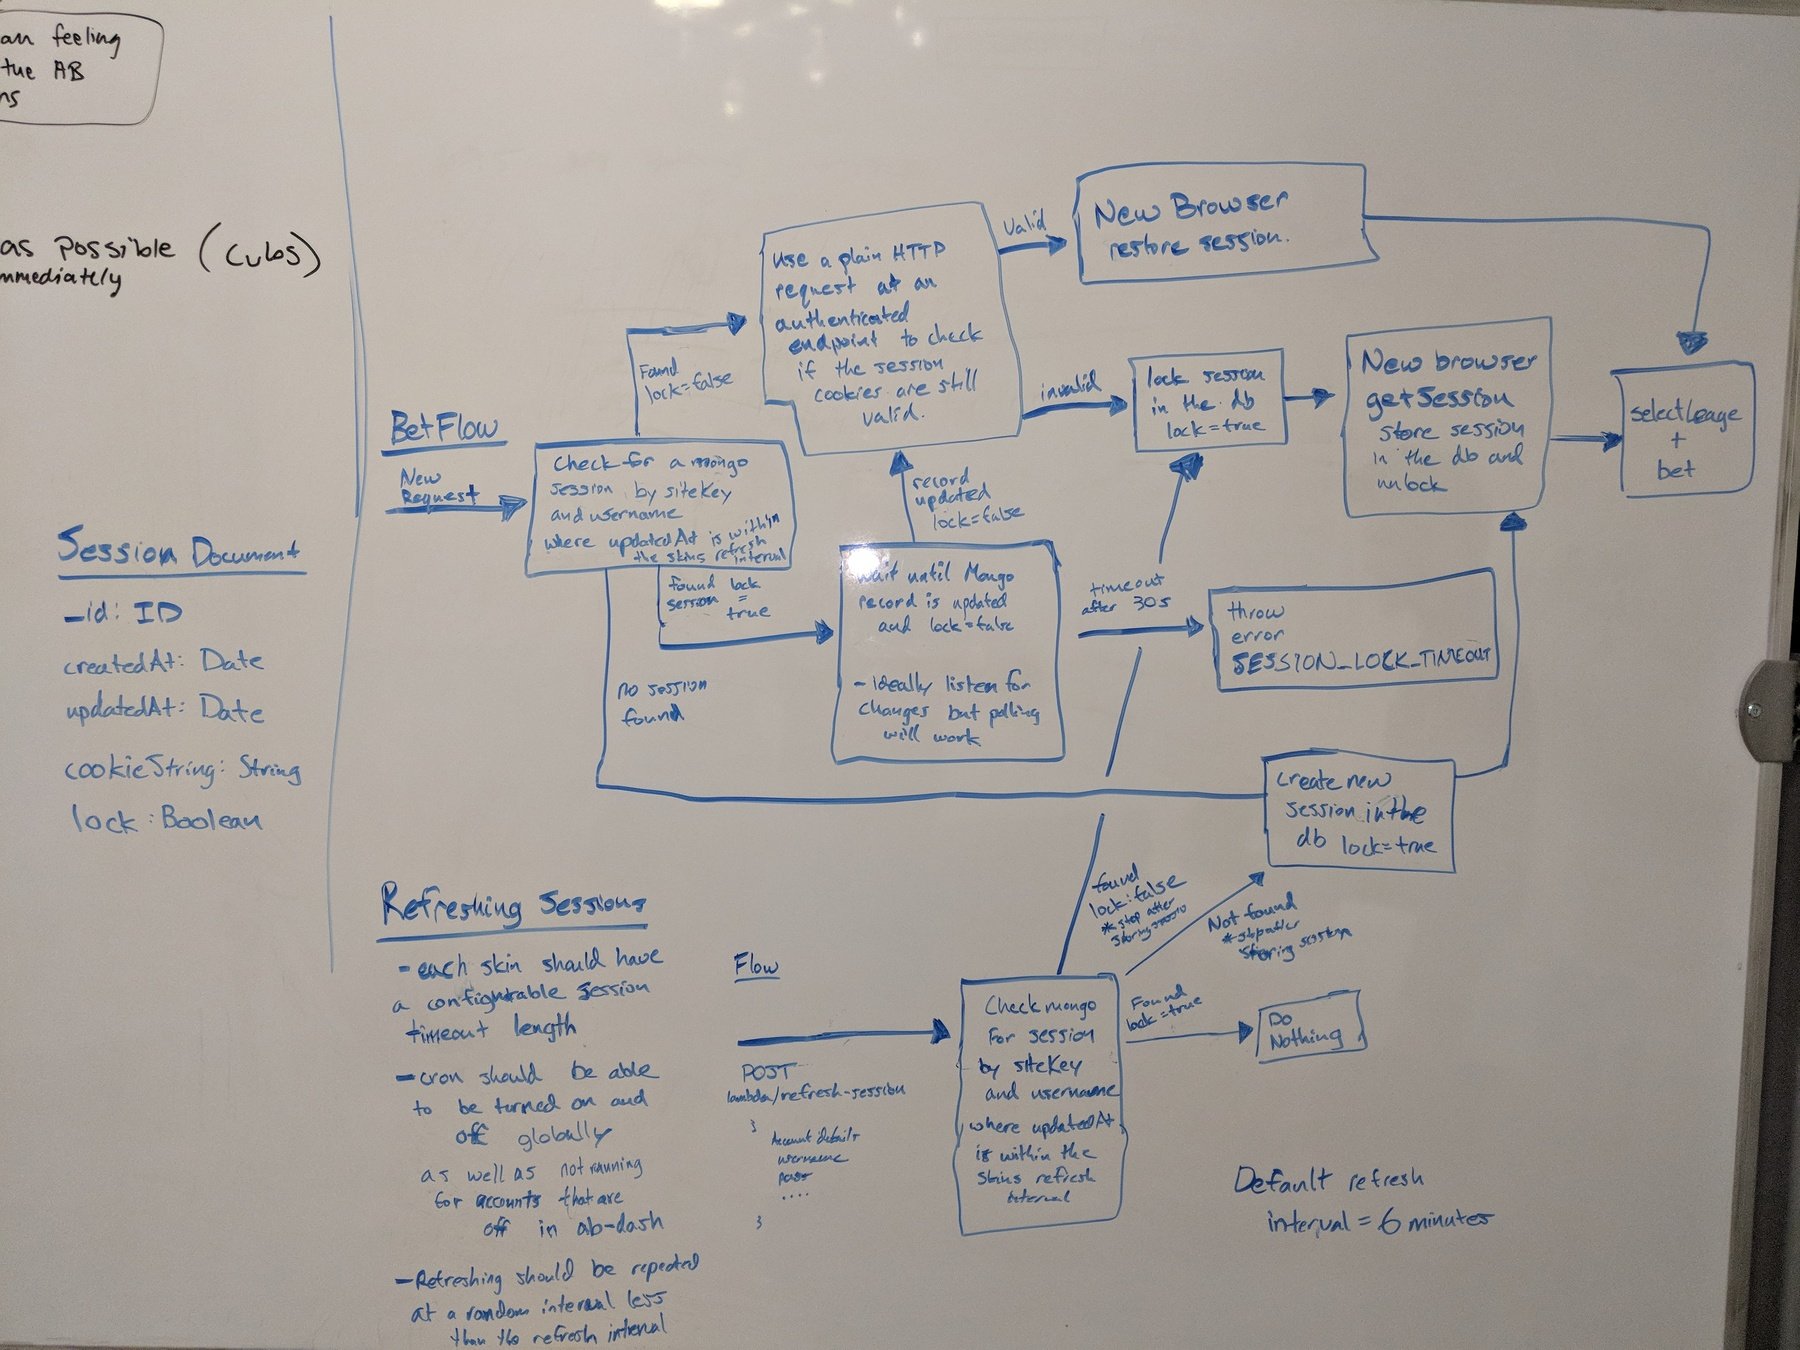 an feeling
the AB
ns
as possible (cubs)
mmediately
Session Document
_id: ID
createdAt: Date
updatedAt: Date
cookieString: String
lock: Boolean
BetFlow
New
Request
Check for a mongo
session by sitekey
and username
where updatedAt is within
the skins refresh
interval
Found
lock=false
use a plain HTTP
request at an
authenticated
endpoint to check
if the session
cookies are still
valid.
Valid
New Browser
restore session.
invalid
lock session
in the db
lock=true
New browser
getSession
store session
in the db and
unlock
selectLeage
+
bet
found lock
session =
true
record
updated
lock=false
wait until Mongo
record is updated
and lock=false
- Ideally listen for
changes but polling
will work
timeout
after 30s
throw
error
SESSION_LOCK_TIMEOUT
no session
found
create new
session in the
db lock=true
Refreshing Sessions
- each skin should have
a configurable session
timeout length
- cron should be able
to be turned on and
off globally
as well as not running
for accounts that are
off in ab-dash
- Refreshing should be repeated
at a random interval less
than the refresh interval
Flow
POST
lambda/refresh-session
{
Account details
username
pass
....
}
Check mongo
For session
by sitekey
and username
where updatedAt
is within the
skins refresh
interval
found
lock:false
* stop after
storing session
Not found
* stop after
storing session
Found
lock=true
Do
Nothing
Default refresh
interval = 6 minutes